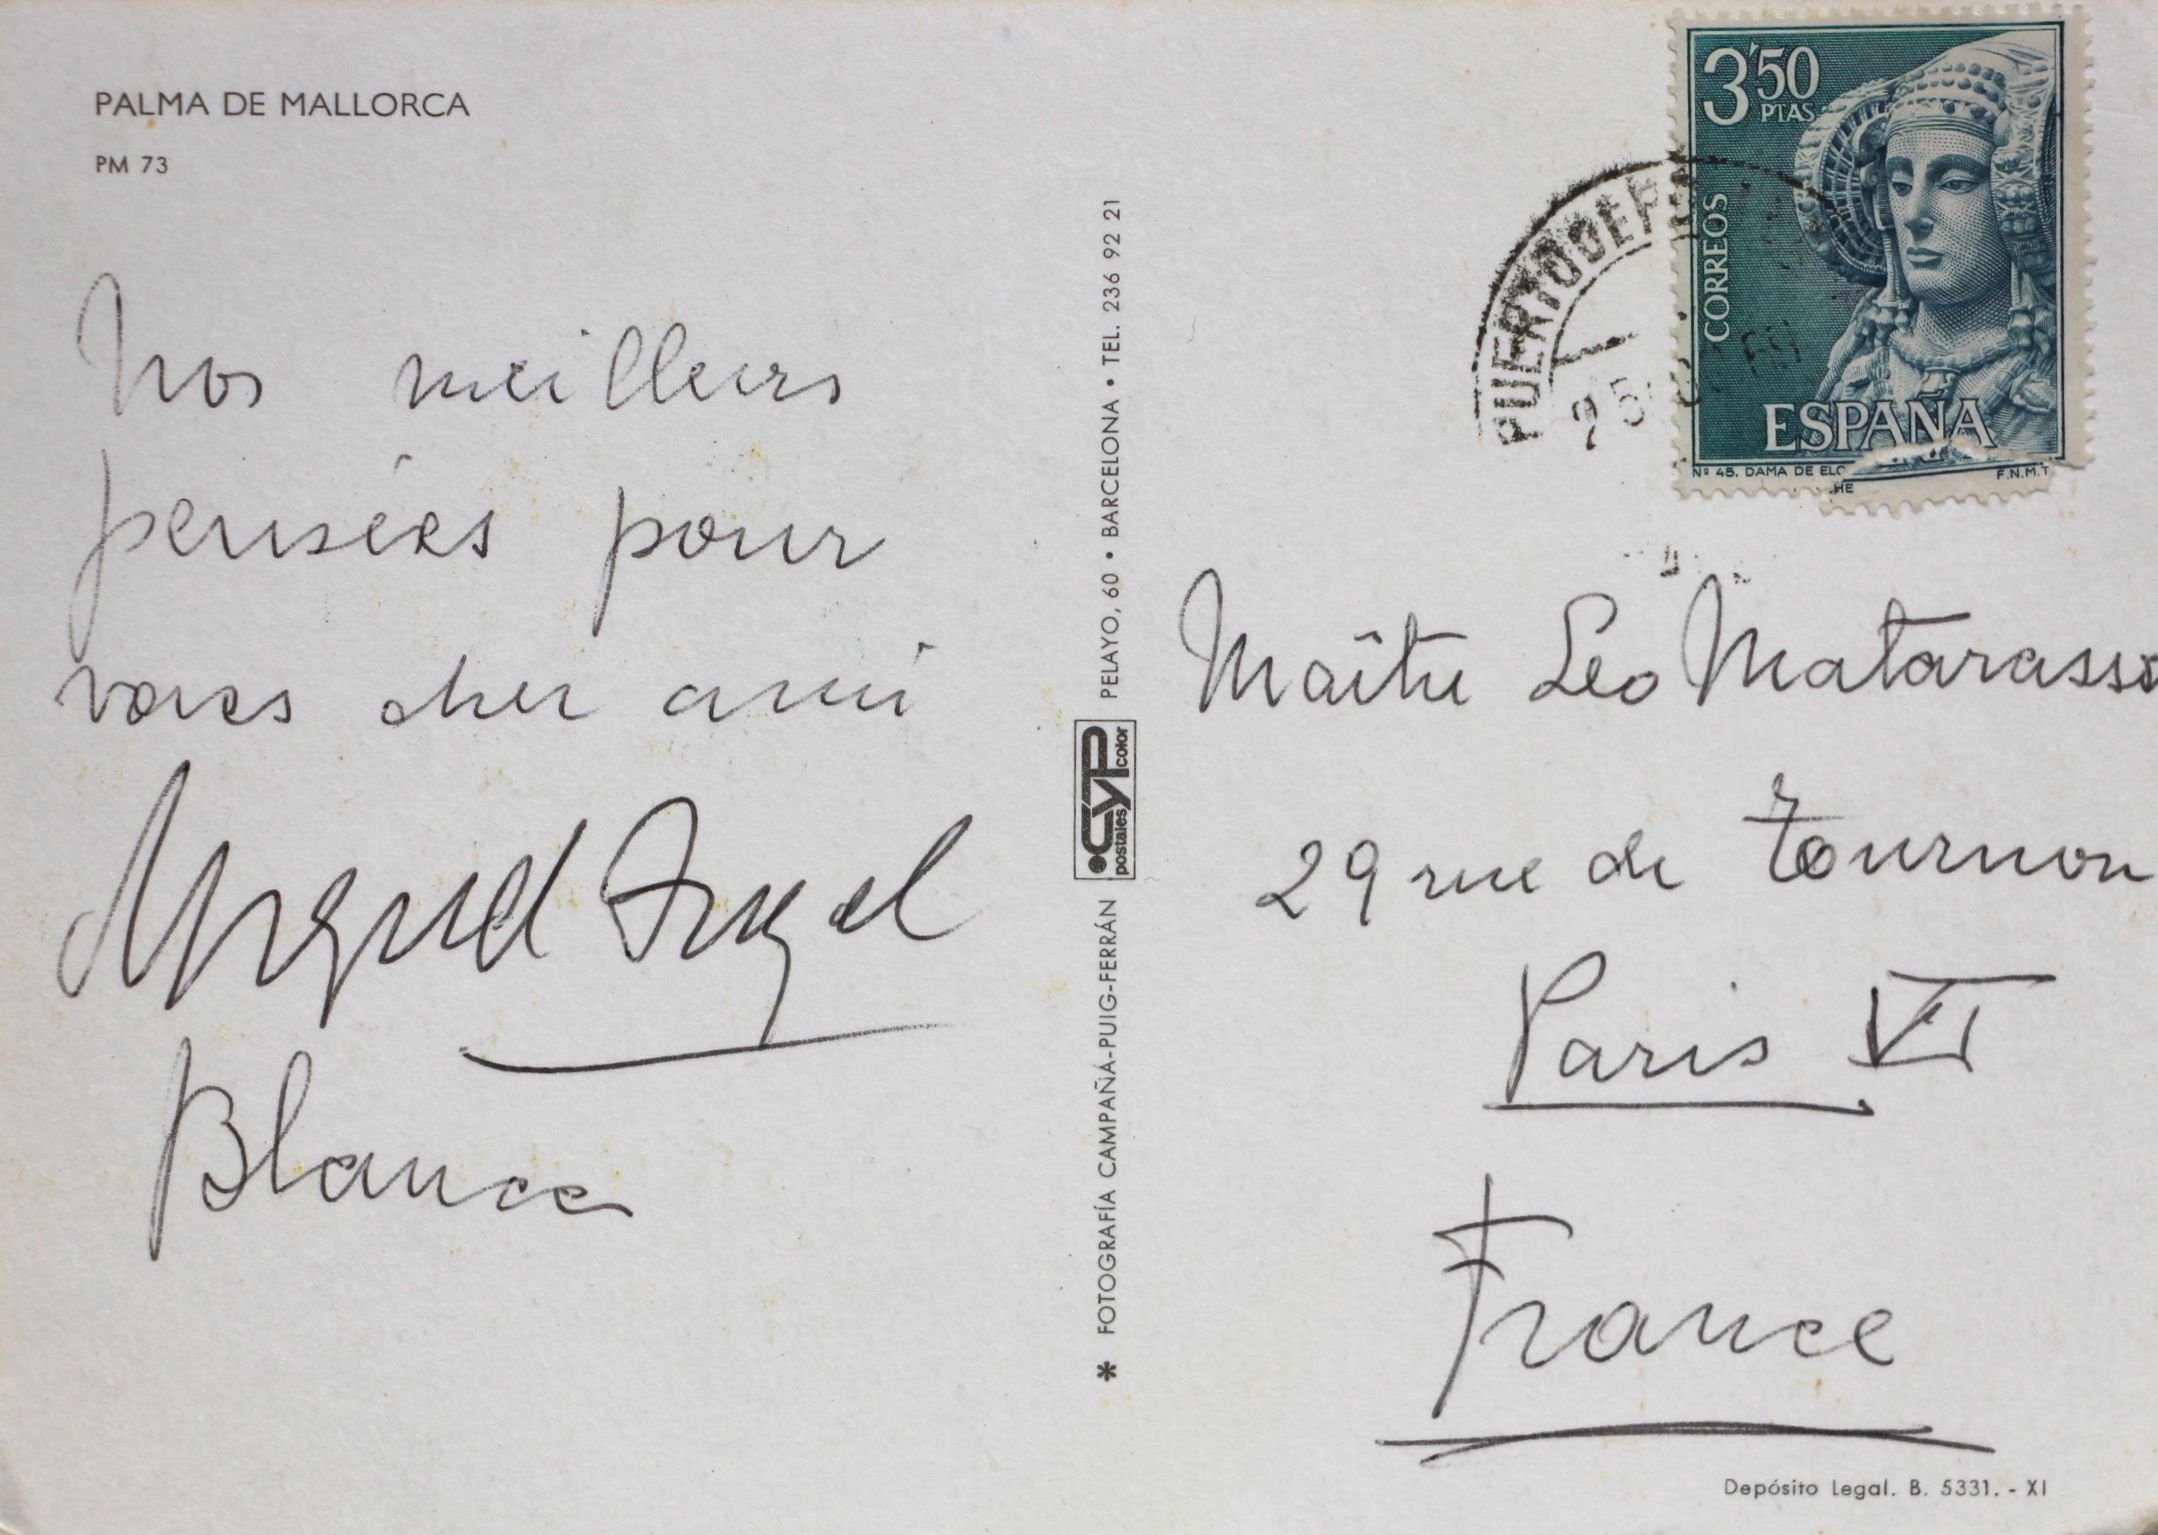 PALMA DE MALLORCA
PM 73
Nos meilleurs
pensées pour
vous cher ami
Miguel Angel
Blanca
* FOTOGRAFÍA CAMPAÑÁ-PUIG-FERRÁN
CYP
postales color
PELAYO, 60 • BARCELONA • TEL. 236 92 21
3'50
PTAS
CORREOS
ESPAÑA
Nº 45. DAMA DE ELCHE
F.N.M.T
PUERTO DE
25
Maître Leo Matarasso
29 rue de Tournon
Paris VI
France
Depósito Legal. B. 5331. - XI